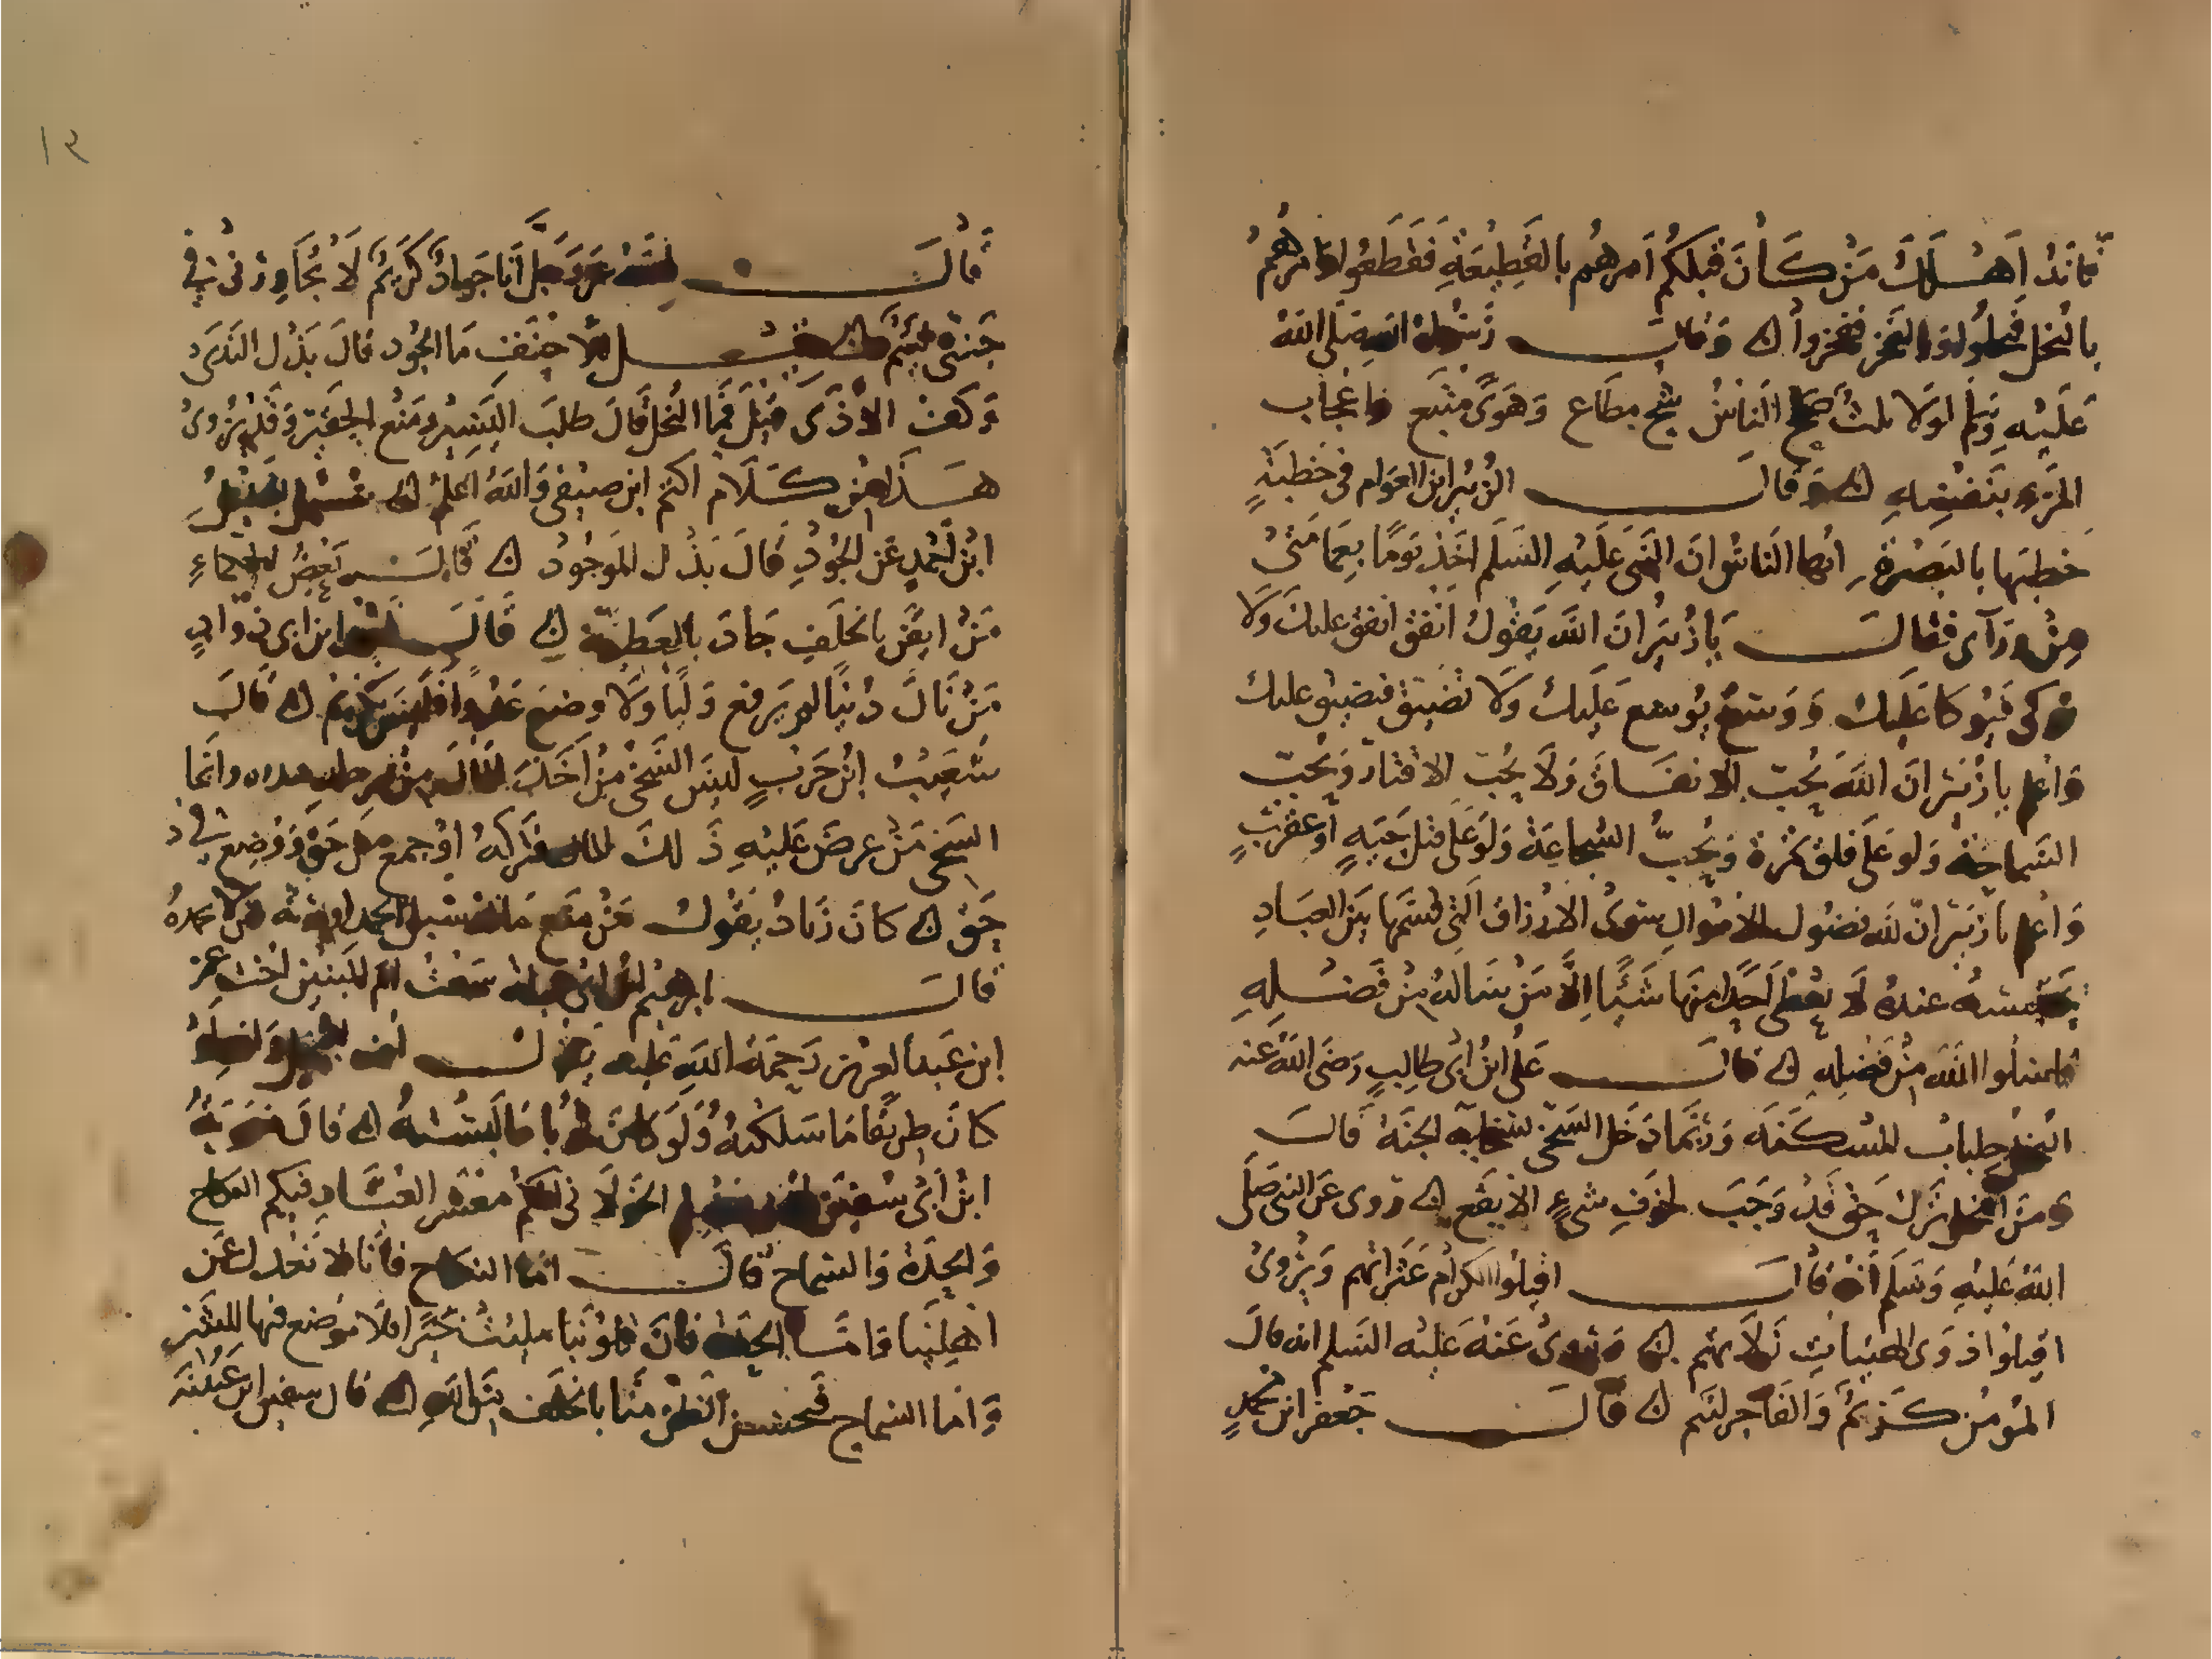 فانه اهلك من كان قبلكم امرهم بالقطيعة فقطعوا وامرهم
بالبخل فبخلوا وبالفجر ففجروا ن وقال رسول الله صلى الله
عليه وسلم لولا ثلث صلح الناس شح مطاع وهوى متبع واعجاب
المرء بنفسه ن وقال الزبير ابن العوام في خطبة
خطبها بالبصرة ايها الناس ان النبي عليه السلم اخذ يوما بعمامتي
من ورآى فقال يا زبير ان الله يقول انفق انفق عليك ولا
توكى فيوكا عليك ووسع يوسع عليك ولا تضيق فيضيق عليك
واعلم يا زبير ان الله يحب الانفاق ولا يحب الاقتار ويحب
السماحة ولو على فلق تمرة ويحب الشجاعة ولو على قتل حية او عقرب
واعلم يا زبير ان لله فضول الاموال سوى الارزاق التي قسمها بين العباد
محتبسة عنده لا يعطى احدا منها شيئا الا من سأله من فضله
فاسئلوا الله من فضله ن قال على ابن ابى طالب رضى الله عنه
البخل جلباب المسكنه وربما دخل السخى بسخايه الجنة قال
ومن البخل ترك حق قد وجب لخوف شيء الا يقع ن روى عن النبي صلى
الله عليه وسلم انه قال اقيلوا الكرام عثراتهم ويروى
اقيلوا ذوى الهيات زلاتهم ن وروى عنه عليه السلم انه قال
المومن كريم والفاجر لئيم ن قال جعفر ابن محمد
١٢
قال الله عز وجل انا جواد كريم لا يجاورنى في
جنتى لئيم ن قيل للاحنف ما الجود قال بذل الندى
وكف الاذى قيل فما البخل قال طلب اليسير ومنع الحقير وقد يروى
هذا من كلام اكثم ابن صيفى والله اعلم ن سئل
ابن احمد عن الجود قال بذل الموجود ن قال بعض الحكماء
من ايقن بالخلف جاد بالعطية ن قال ابن ابى دواد
من نال دنيا لم يرفع وليا ولا وضع عدوا فليس بكريم ن قال
شعيب ابن حرب ليس السخى من اخذ المال من غير حله فبذره وانما
السخى من عرض عليه ذلك المال فتركه او جمع من حق ووضع في
حق ن كان زياد يقول من منع ماله سبل الحمد اورثه من لا يحمده
قال ابرهيم ابن ابى عبلة سمعت ام البنين اخت عمر
ابن عبد العزيز رحمة الله عليه تقول اف للبخل والله لو
كان طريقا ما سلكته ولو كان ثوبا ما لبسته ن قال
ابن ابى سفين الخولانى لكم معشر العباد فيكم النكاح
والحدة والسماح قال اما النكاح فانا لا نعدل عن
اهلينا واما الحدة فان قلوبنا مليت خيرا فلا موضع فيها للشر
واما السماح فحسن الظن منا بالخلف من الله ن قال سفين ابن عيينه